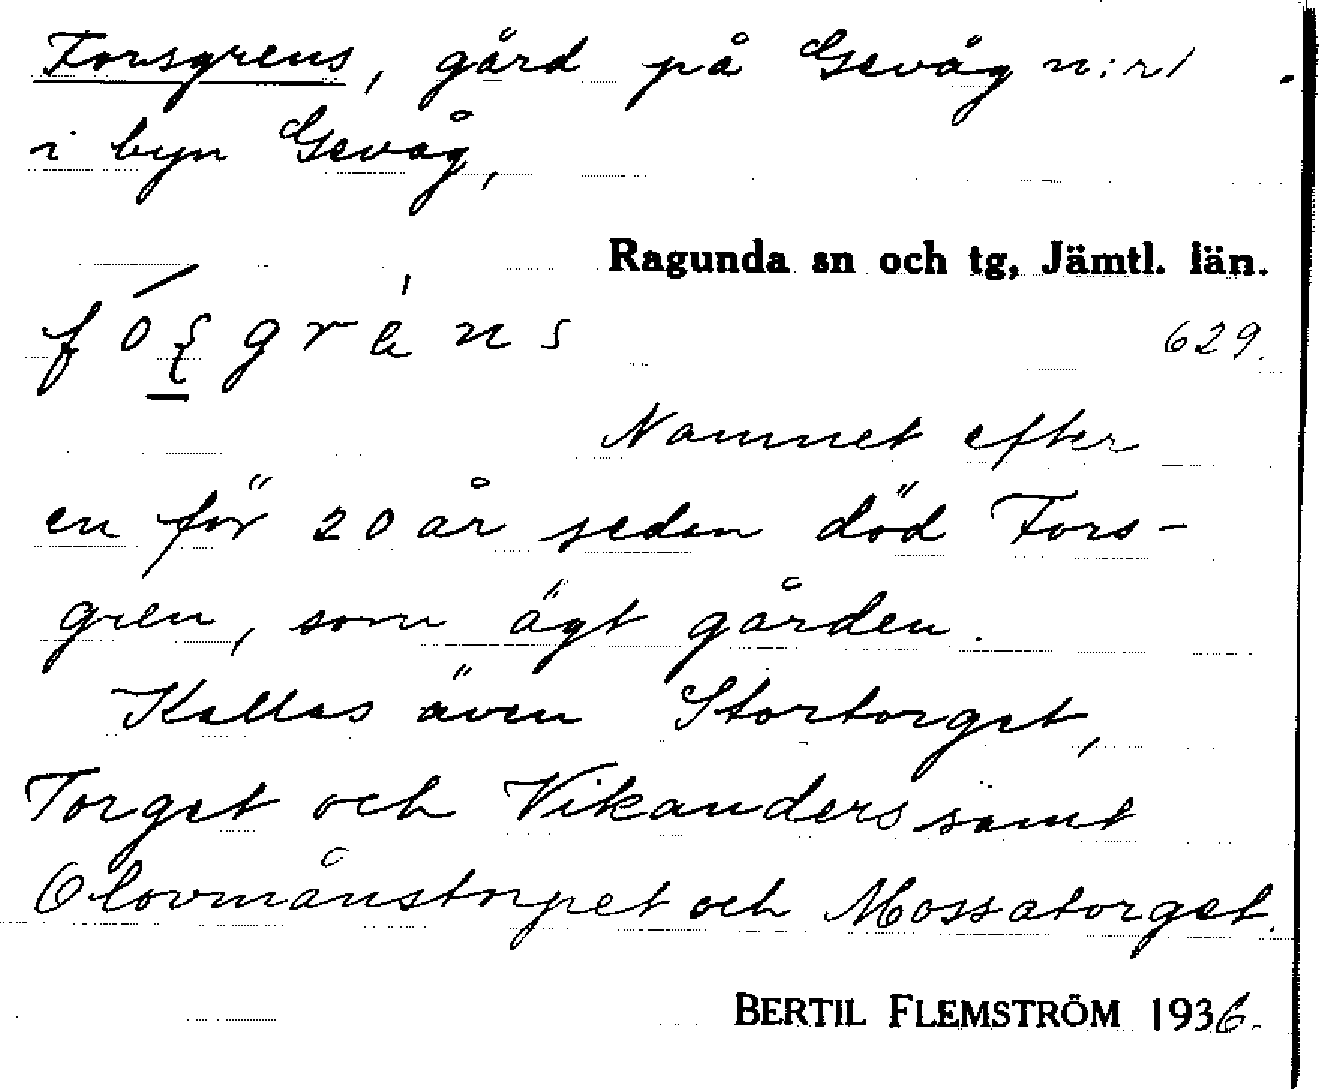 Forsgrens, gård på Gevåg n:r 1
i byn Gevåg,
Ragunda sn och tg, Jämtl. län.
629.
Namnet efter
en för 20 år sedan död Fors-
gren, som ägt gården.
Kallas även Stortorget,
Torget och Vikanders samt
Olovmånstorpet och Mossatorget.
BERTIL FLEMSTRÖM 1936.